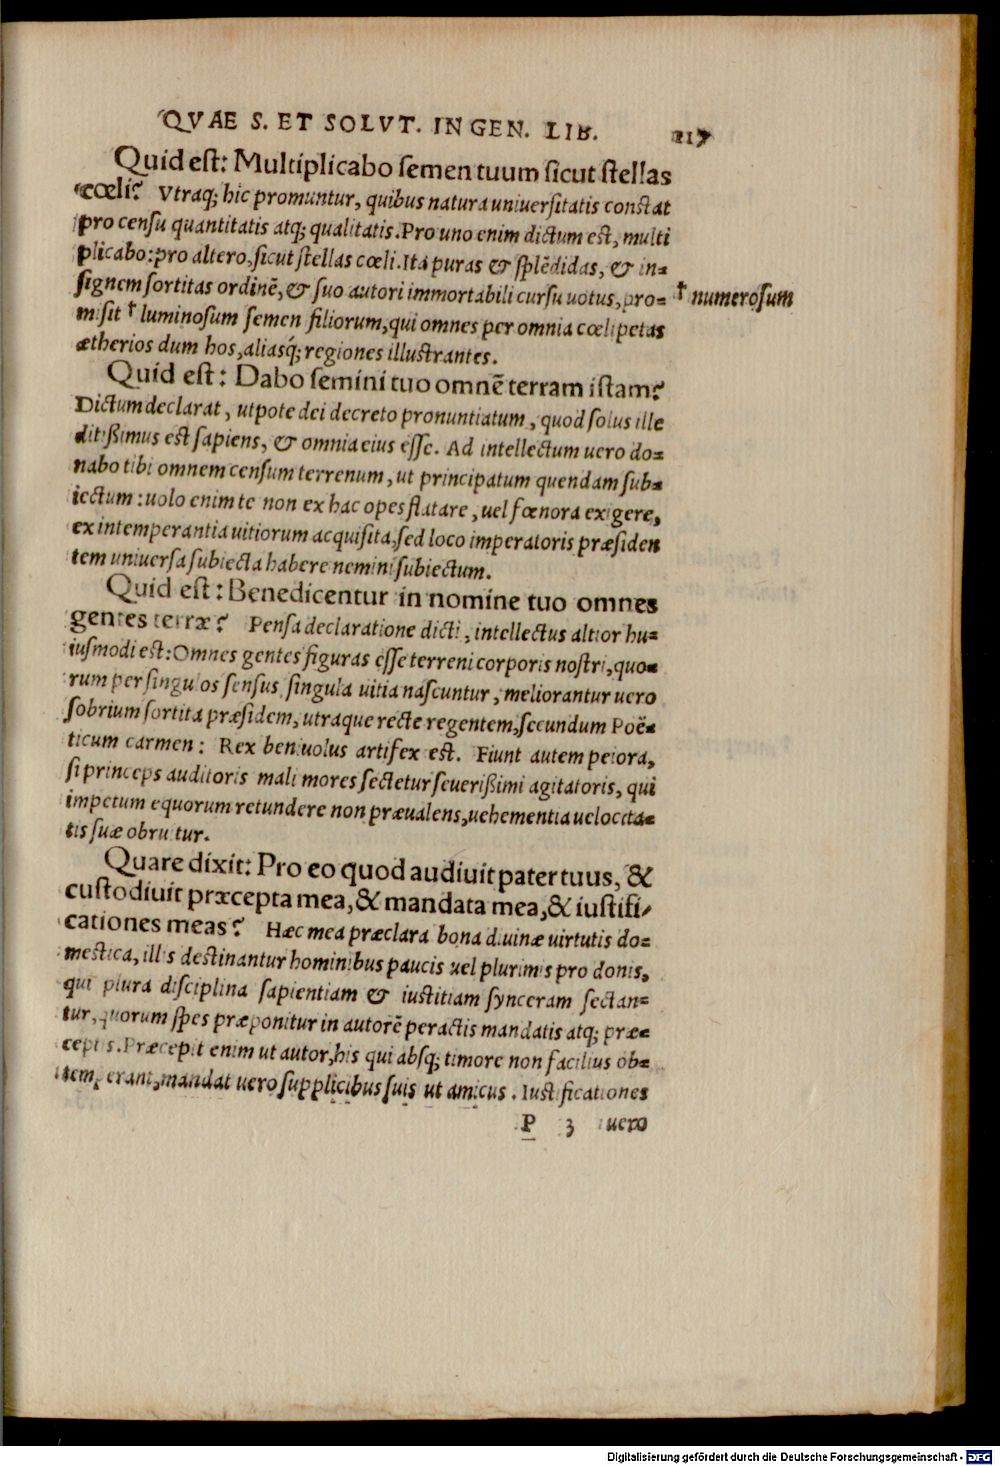 QVAE S. ET SOLVT. IN GEN. LIB. 217
Quid est: Multiplicabo semen tuum sicut stellas
cœli? Vtraq; hic promuntur, quibus natura uniuersitatis constat
pro censu quantitatis atq; qualitatis. Pro uno enim dictum est, multi
plicabo: pro altero, sicut stellas cœli. Ita puras & splẽdidas, & in=
signem sortitas ordinẽ, & suo autori immortabili cursu uotus, pro= † numerosum
misit † luminosum semen filiorum, qui omnes per omnia cœlipetas
ætherios dum hos, aliasq́; regiones illustrantes.
Quid est: Dabo semini tuo omnẽ terram istam?
Dictum declarat, utpote dei decreto pronuntiatum, quod solus ille
ditißimus est sapiens, & omnia eius esse. Ad intellectum uero do=
nabo tibi omnem censum terrenum, ut principatum quendam sub=
iectum: uolo enim te non ex hac opes flatare, uel fœnora exigere,
ex intemperantia uitiorum acquisita, sed loco imperatoris præsiden
tem uniuersa subiecta habere nemini subiectum.
Quid est: Benedicentur in nomine tuo omnes
gentes terræ? Pensa declaratione dicti, intellectus altior hu=
iusmodi est: Omnes gentes figuras esse terreni corporis nostri, quo=
rum per singulos sensus singula uitia nascuntur, meliorantur uero
sobrium sortita præsidem, utraque recte regentem, secundum Poë=
ticum carmen: Rex beniuolus artifex est. Fiunt autem peiora,
si princeps auditoris mali mores sectetur seuerißimi agitatoris, qui
impetum equorum retundere non præualens, uehementia uelocita=
tis suæ obruitur.
Quare dixit: Pro eo quod audiuit pater tuus, &
custodiuit præcepta mea, & mandata mea, & iustifi/
cationes meas? Hæc mea præclara bona diuinæ uirtutis do=
mestica, illis destinantur hominibus paucis uel plurimis pro donis,
qui plura disciplina sapientiam & iustitiam synceram sectan=
tur, quorum spes præponitur in autorẽ peractis mandatis atq; præ=
ceptis. Præcepit enim ut autor, his qui absq; timore non facilius ob=
temperant, mandat uero supplicibus suis ut amicus. Iustificationes
P 3 uero
Digitalisierung gefördert durch die Deutsche Forschungsgemeinschaft - DFG